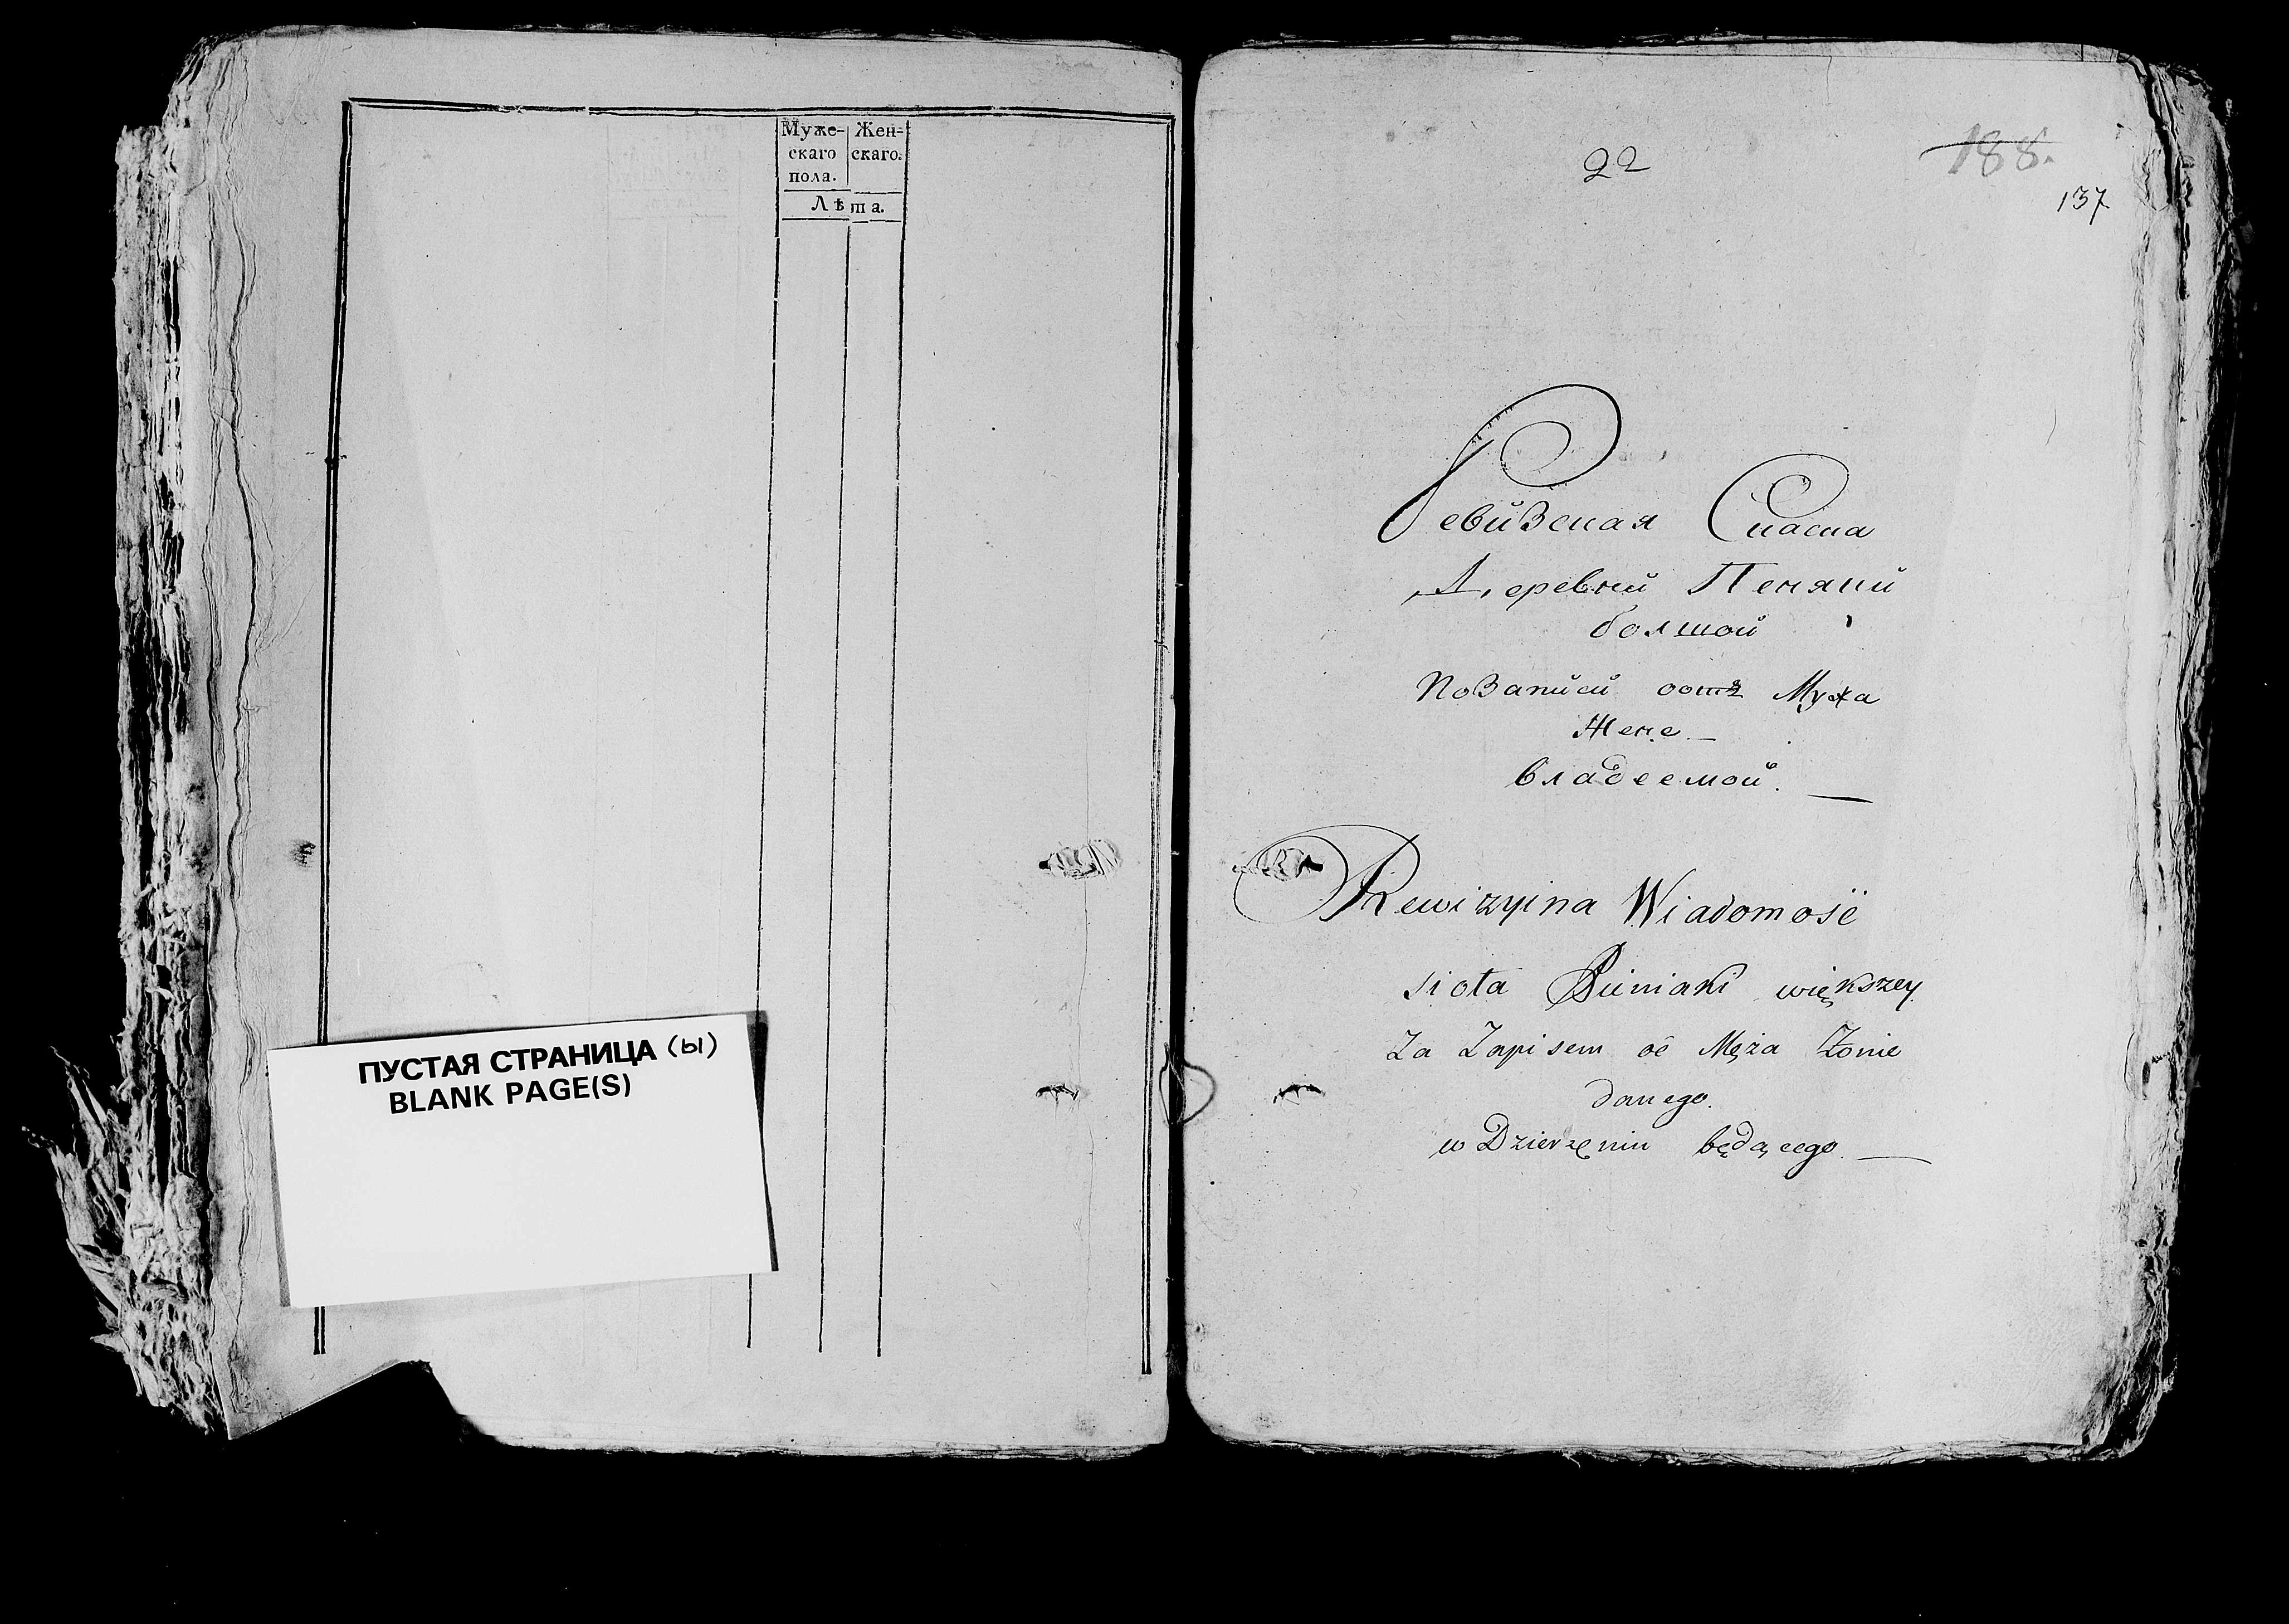 Муже- Жен-
скаго скаго.
пола.
Лѣта.
ПУСТАЯ СТРАНИЦА (ы)
BLANK PAGE(S)
22
188.
137
Ревизская Скаска
Деревни Пеняки
болшой
по Записи оотъ Мужа
Жене
владеемой.
Rewizyina Wiadomość
sioła Pieniaki większey
Za Zapisem od Męża Żonie
danego.
w Dzierżeniu będącego.